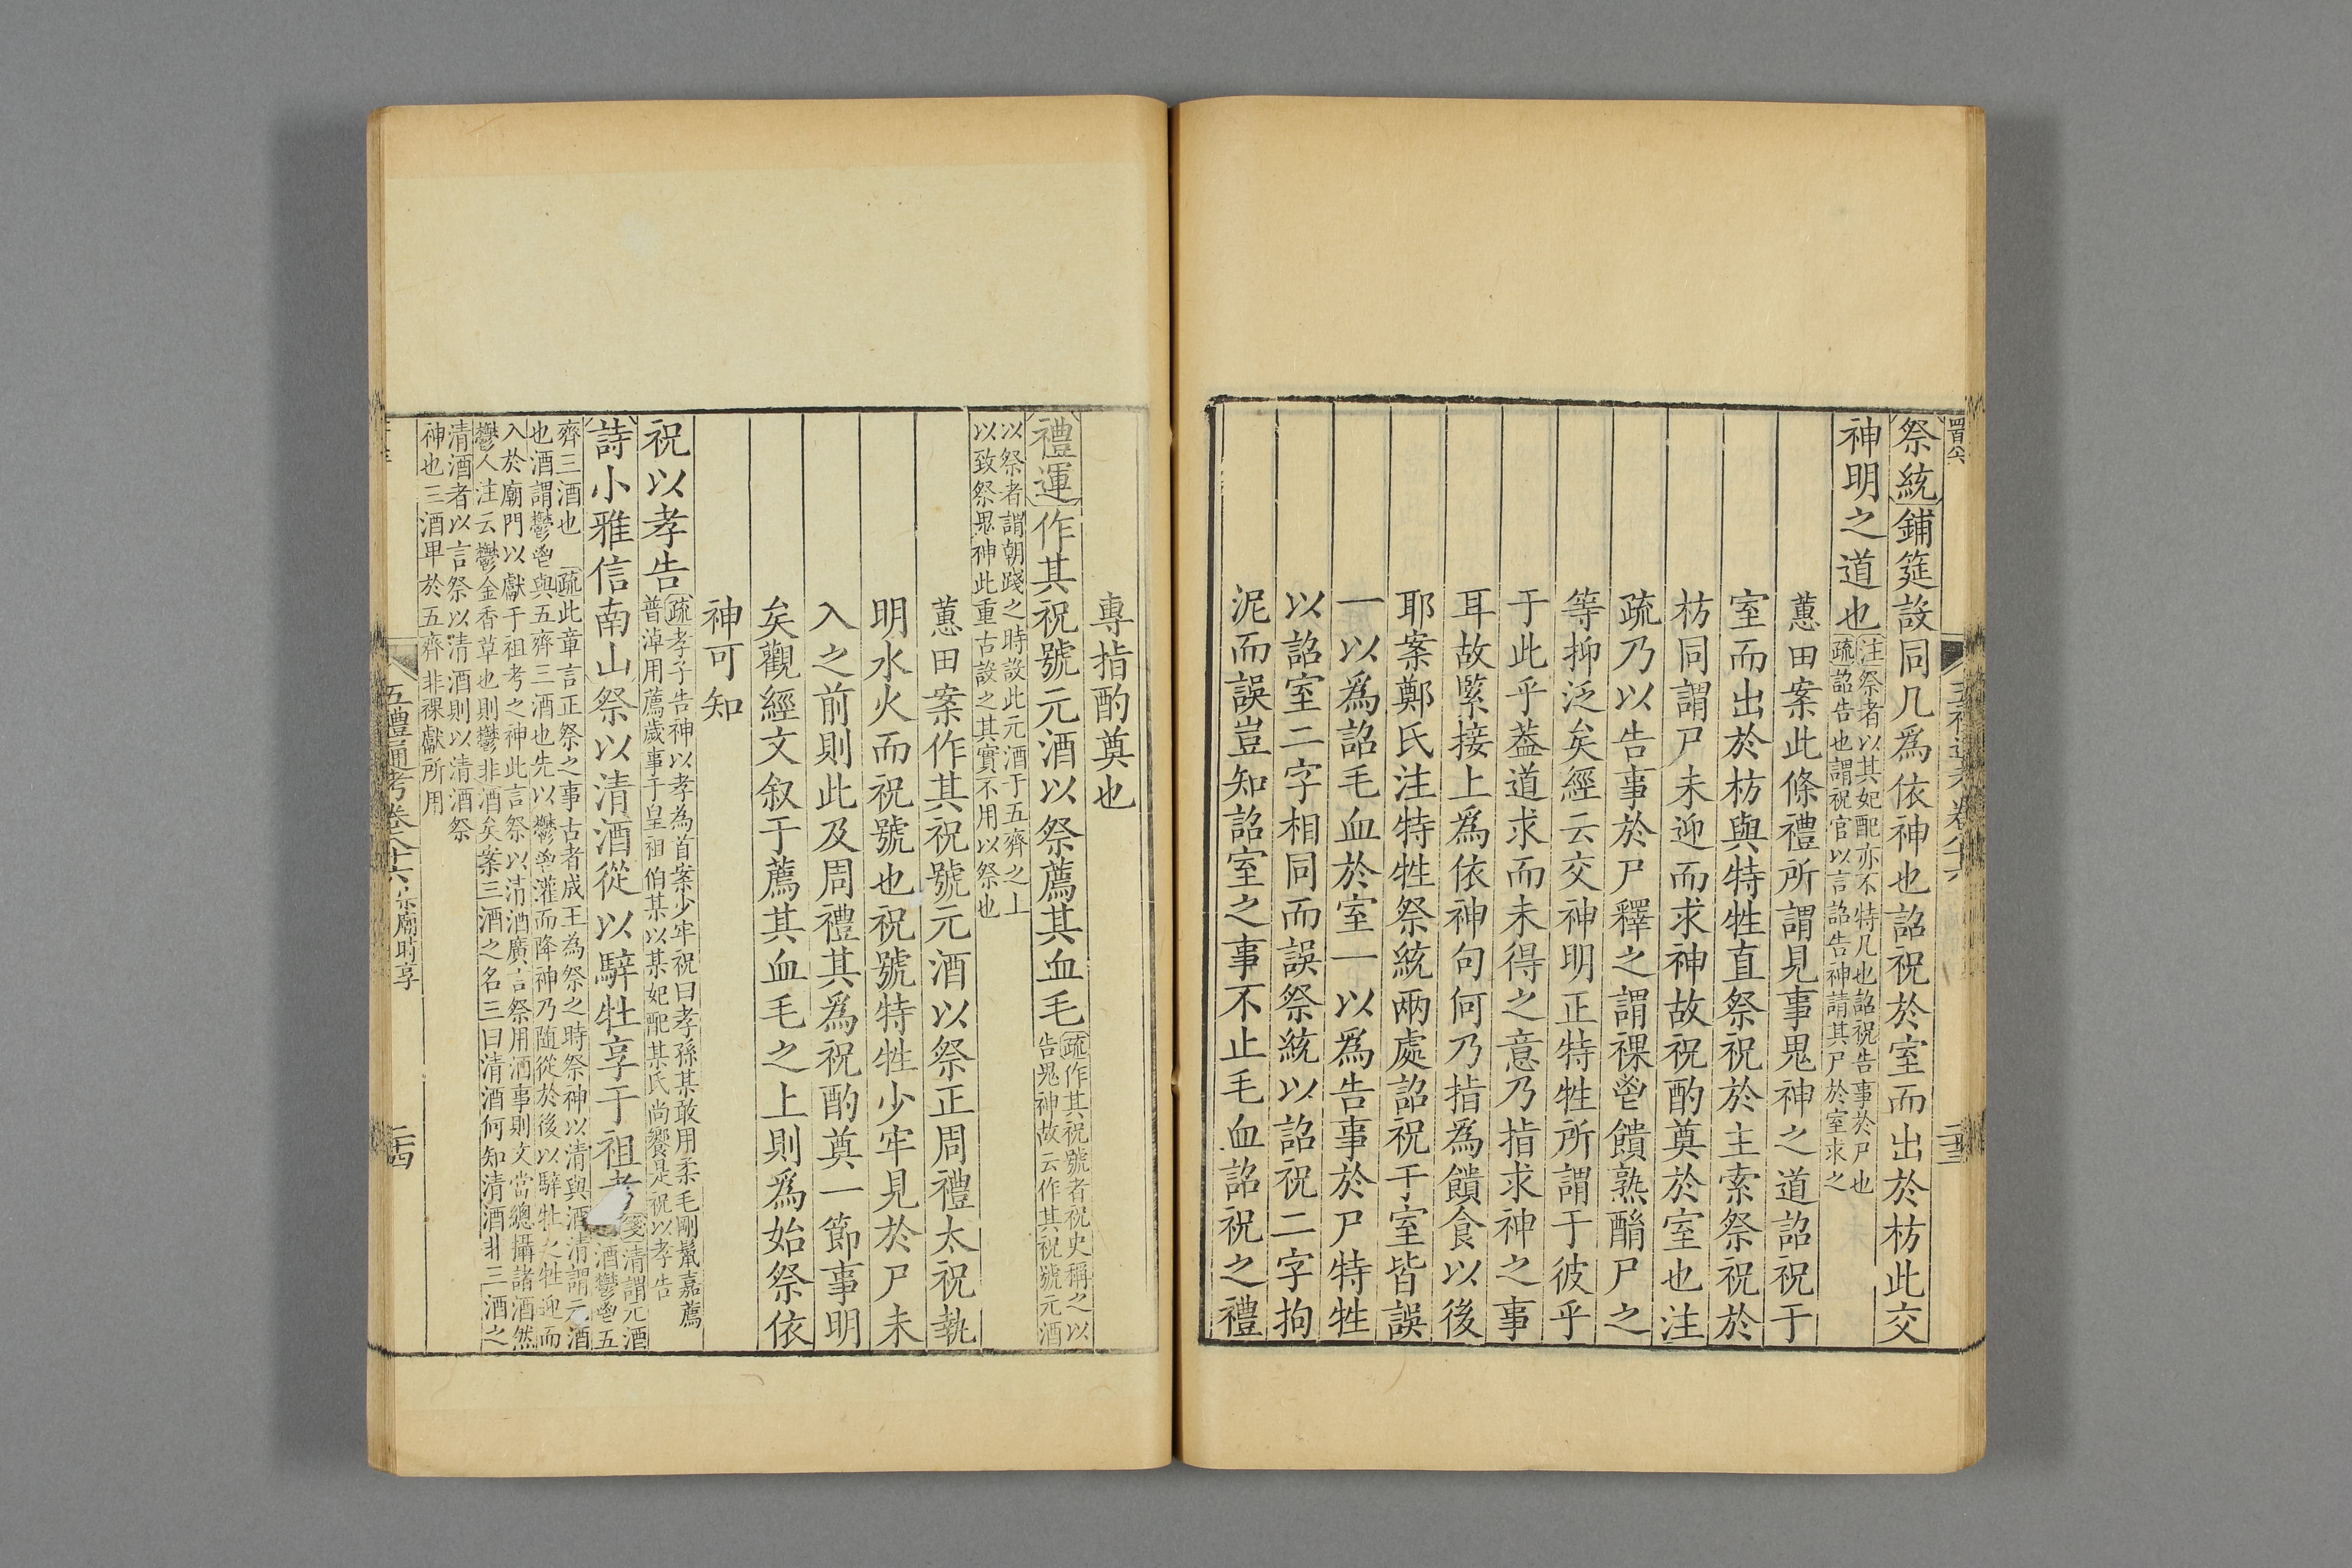 祭統鋪筵設同几爲依神也詔祝於室而出於祊此交
神明之道也
注祭者以其妃配亦不特几也詔祝告事於尸也
疏詔告也謂祝官以言詔告神請其尸於室求之
蕙田案此條禮所謂見事鬼神之道詔祝于
室而出於祊與特牲直祭祝於主索祭祝於
祊同謂尸未迎而求神故祝酌奠於室也注
疏乃以告事於尸釋之謂祼鬯饋熟酳尸之
等抑泛矣經云交神明正特牲所謂于彼乎
于此乎葢道求而未得之意乃指求神之事
耳故緊接上爲依神句何乃指為饋食以後
耶案鄭氏注特牲祭統兩處詔祝于室皆誤
一以爲詔毛血於室一以爲告事於尸特牲
以詔室二字相同而誤祭統以詔祝二字拘
泥而誤豈知詔室之事不止毛血詔祝之禮
專指酌奠也
禮運作其祝號元酒以祭薦其血毛
疏作其祝號者祝史稱之以
告鬼神故云作其祝號元酒
以祭者謂朝踐之時設此元酒于五齊之上
以致祭鬼神此重古設之其實不用以祭也
蕙田案作其祝號元酒以祭正周禮太祝執
明水火而祝號也祝號特牲少牢見於尸未
入之前則此及周禮其爲祝酌奠一節事明
矣觀經文叙于薦其血毛之上則爲始祭依
神可知
祝以孝告
疏孝子告神以孝為首案少牢祝曰孝孫某敢用柔毛剛鬣嘉薦
普淖用薦歲事于皇祖伯某以某妃配某氏尚饗是祝以孝告
詩小雅信南山祭以清酒從以騂牡享于祖考
箋清謂元酒
酒鬱鬯五
齊三酒也 疏此章言正祭之事古者成王為祭之時祭神以清與酒清謂元酒
也酒謂鬱鬯與五齊三酒也先以鬱鬯灌而降神乃隨從於後以騂牡之牲迎而
入於廟門以獻于祖考之神此言祭以清酒廣言祭用酒事則文當總攝諸酒然
鬱人注云鬱金香草也則鬱非酒矣案三酒之名三曰清酒何知清酒非三酒之
清酒者以言祭以清酒則以清酒祭
神也三酒卑於五齊非祼獻所用
五禮通考卷八十六 宗廟時享
二十四